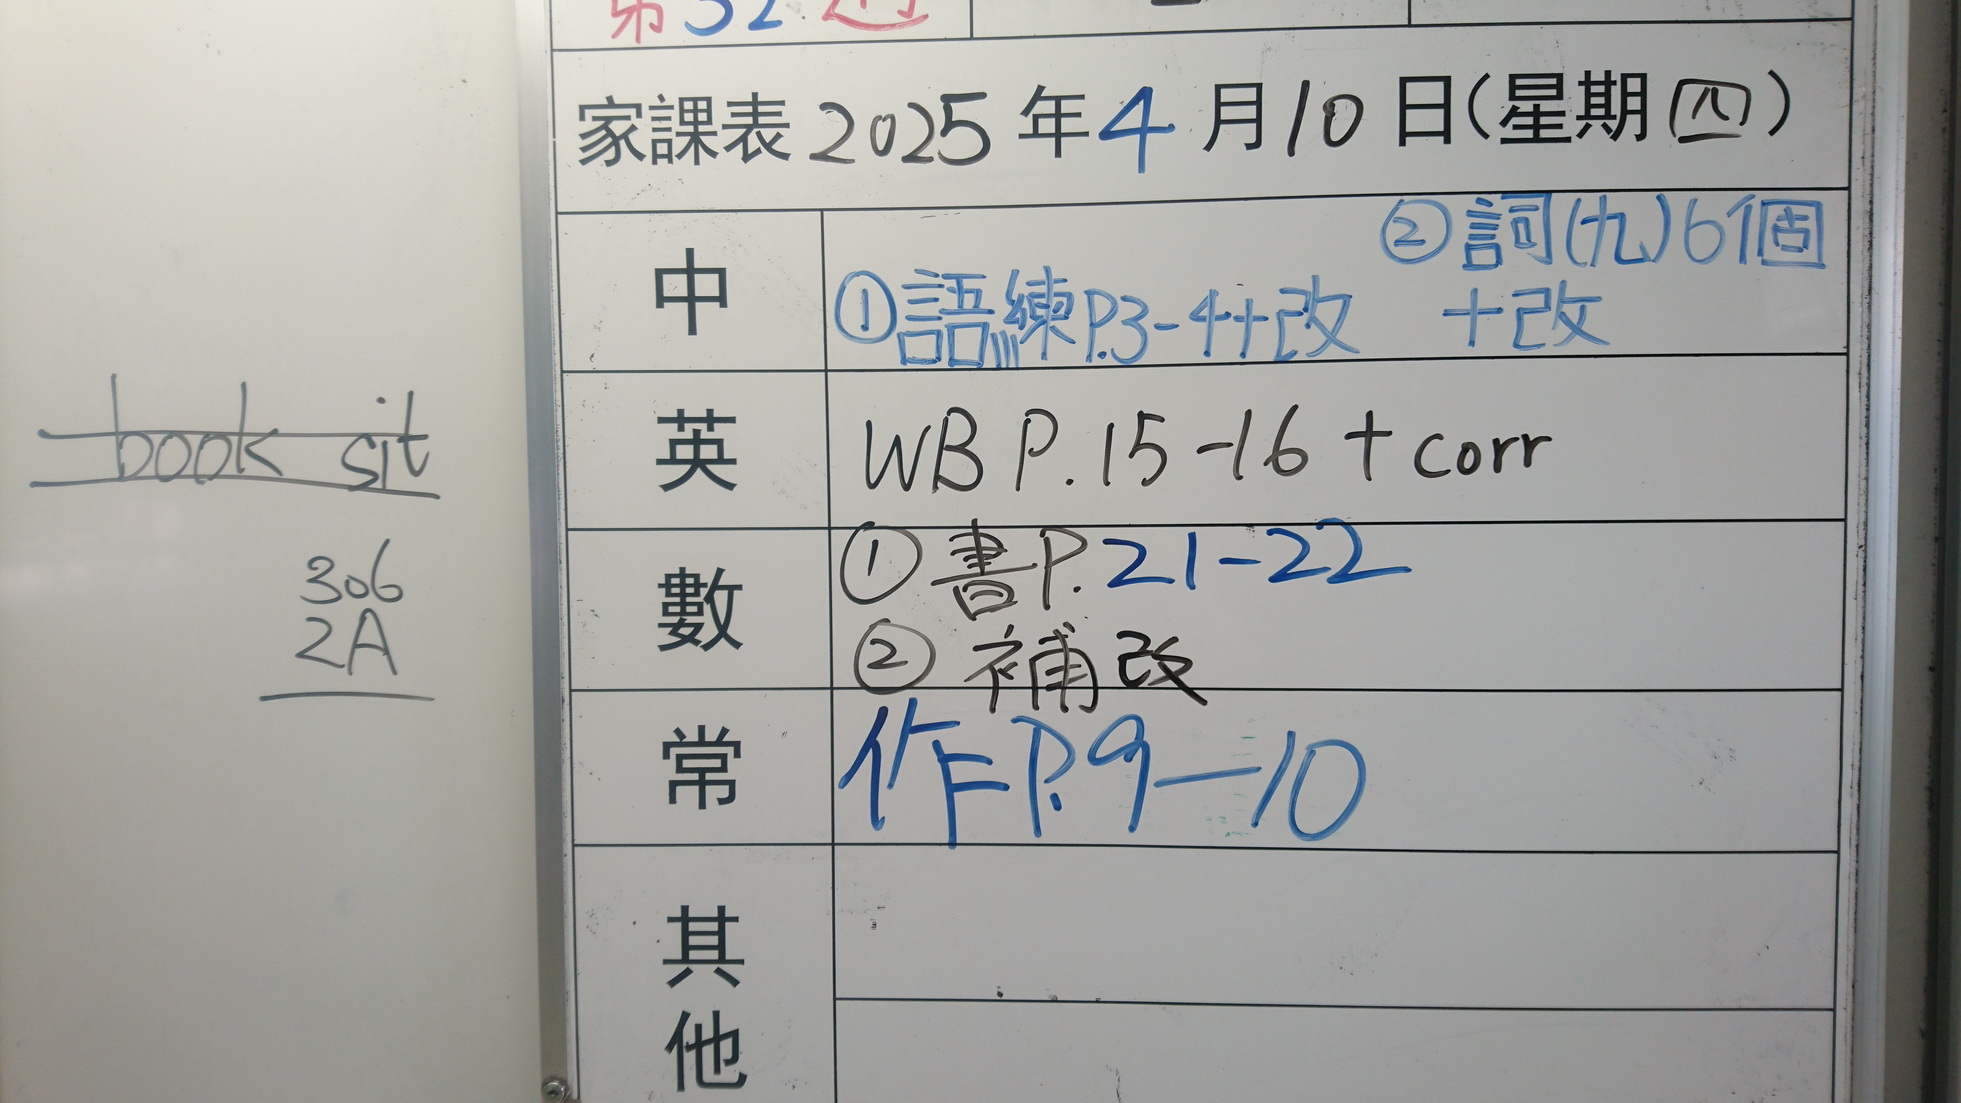 第32週
家課表2025年4月10日(星期四)
中
②詞(九)6個
①語練P.3-4+改 +改
英
WB P.15-16+corr
數
①書P.21-22
②補改
常
作P.9—10
其
他
book sit
306
2A